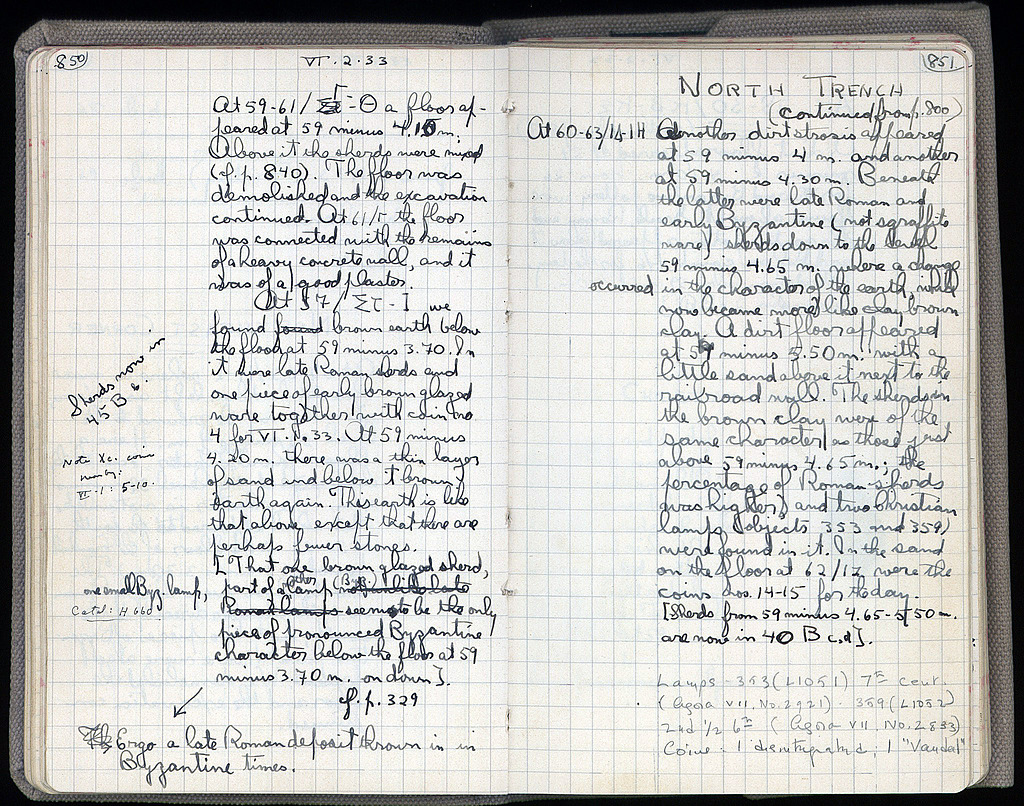 850
VI.2.33
At 59-61/ -Θ a floor ap-
peared at 59 minus 4.10 m.
Above it the sherds were mixed
(cf. p. 840). The floor was
demolished and the excavation
continued. At 61/Γ the floor
was connected with the remains
of a heavy concrete wall, and it
was of a good plaster.
At 57/ we
found found brown earth below
the floor at 59 minus 3.70. In
it were late Roman sherds and
one piece of early brown glazed
ware together with coin no
4 for VI.1.33. At 59 minus
4.20 m. there was a thin layer
of sand and below it brown
earth again. This earth is like
that above except that there are
perhaps fewer stones.
[That one brown glazed sherd,
one small Byz. lamp,
Catd: H 660
part of a other lamp (Byz.) not unlike late
Roman lamps seems to be the only
piece of pronounced Byzantine
character below the floor at 59
minus 3.70 m. on down].
cf. p. 329
Ergo a late Roman deposit thrown in in
Byzantine times.
Sherds now in
45 B 6.
Note Xc. coin
VI-1: 5-10.
851
NORTH TRENCH
(continued from p. 800)
At 60-63/14-1H Another dirt strosis appeared
at 59 minus 4 m. and another
at 59 minus 4.30 m. Beneath
the latter were late Roman and
early Byzantine (not sgraffito
ware) sherds down to the level
59 minus 4.65 m. where a change
occurred in the character of the earth, which
now became more like clay brown
clay. A dirt floor appeared
at 59 minus 5.50 m. with a
little sand above it next to the
railroad wall. The sherds in
the brown clay were of the
same character as those just
above 59 minus 4.65 m.; the
percentage of Roman sherds
was higher) and two Christian
lamps (objects 353 and 359)
were found in it. In the sand
on the floor at 62/17 were the
coins nos. 14-15 for the day.
[Sherds from 59 minus 4.65-5.50 m.
are now in 40 B c,d].
Lamps - 353 (L1051) 7th cent.
(Agora VII, No. 2921). 359 (L1052)
2nd 1/2 6th (Agora VII, No. 2833)
Coins: 1 disintegrated; 1 "Vandal"